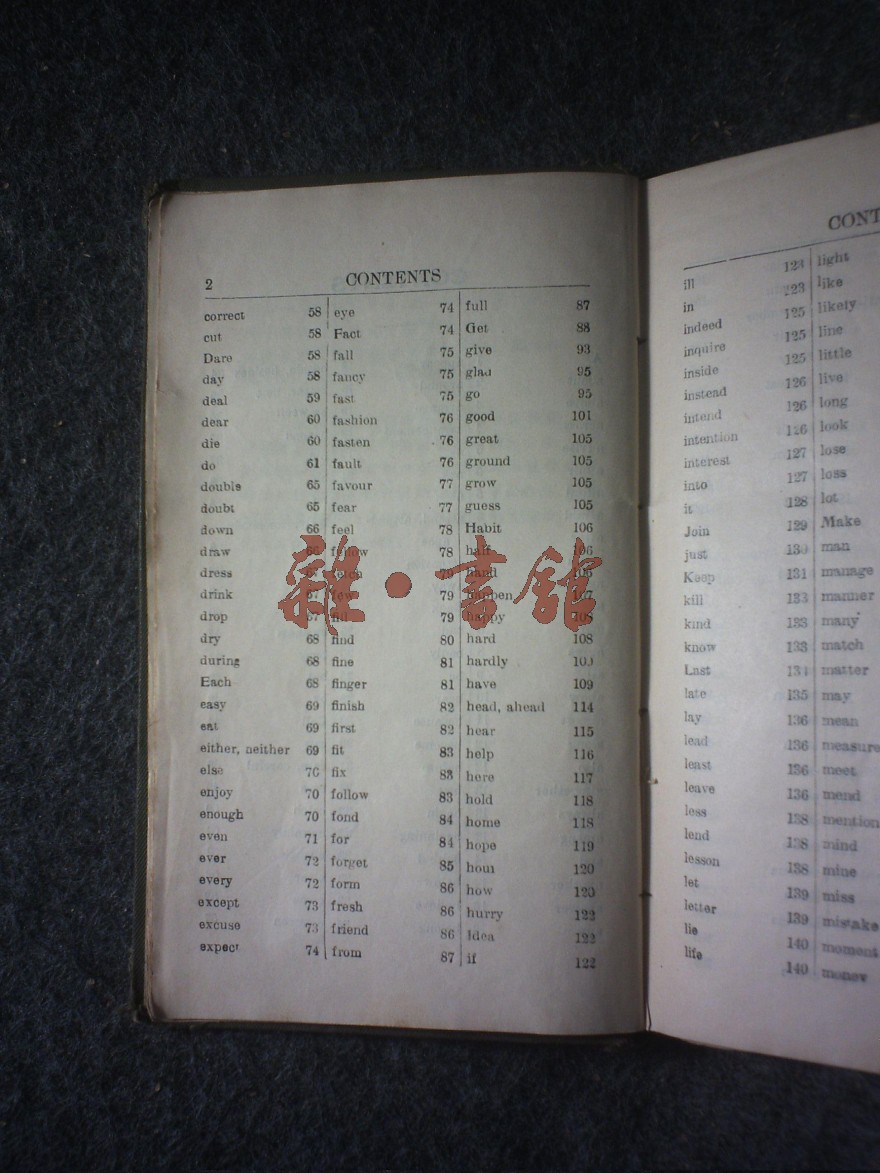 2 CONTENTS
correct 58
cut 58
Dare 58
day 58
deal 59
dear 60
die 60
do 61
double 65
doubt 65
down 66
draw 66
dress 67
drink 67
drop 67
dry 68
during 68
Each 68
easy 69
eat 69
either, neither 69
else 70
enjoy 70
enough 70
even 71
ever 72
every 72
except 73
excuse 73
expect 74
eye 74
Fact 74
fall 75
fancy 75
fast 75
fashion 76
fasten 76
fault 76
favour 77
fear 77
feel 78
78
79
few 79
79
find 80
fine 81
finger 81
finish 82
first 82
fit 83
fix 83
follow 83
fond 84
for 84
forget 85
form 86
fresh 86
friend 86
from 87
full 87
Get 88
give 93
glad 95
go 95
good 101
great 105
ground 105
grow 105
guess 105
Habit 106
half 106
hand 106
happen 107
happy 108
hard 108
hardly 109
have 109
head, ahead 114
hear 115
help 116
here 117
hold 118
home 118
hope 119
hour 120
how 120
hurry 122
Idea 122
if 122
雜·書館
CONT
ill 123
in 123
indeed 125
inquire 125
inside 125
instead 126
intend 126
intention 126
interest 127
into 127
it 128
Join 129
just 130
Keep 131
kill 133
kind 133
know 133
Last 134
late 135
lay 136
lead 136
least 136
leave 136
less 138
lend 138
lesson 138
let 139
letter 139
lie 140
life 140
light
like
likely
line
little
live
long
look
lose
loss
lot
Make
man
manage
manner
many
match
matter
may
mean
measure
meet
mend
mention
mind
mine
miss
mistake
moment
money